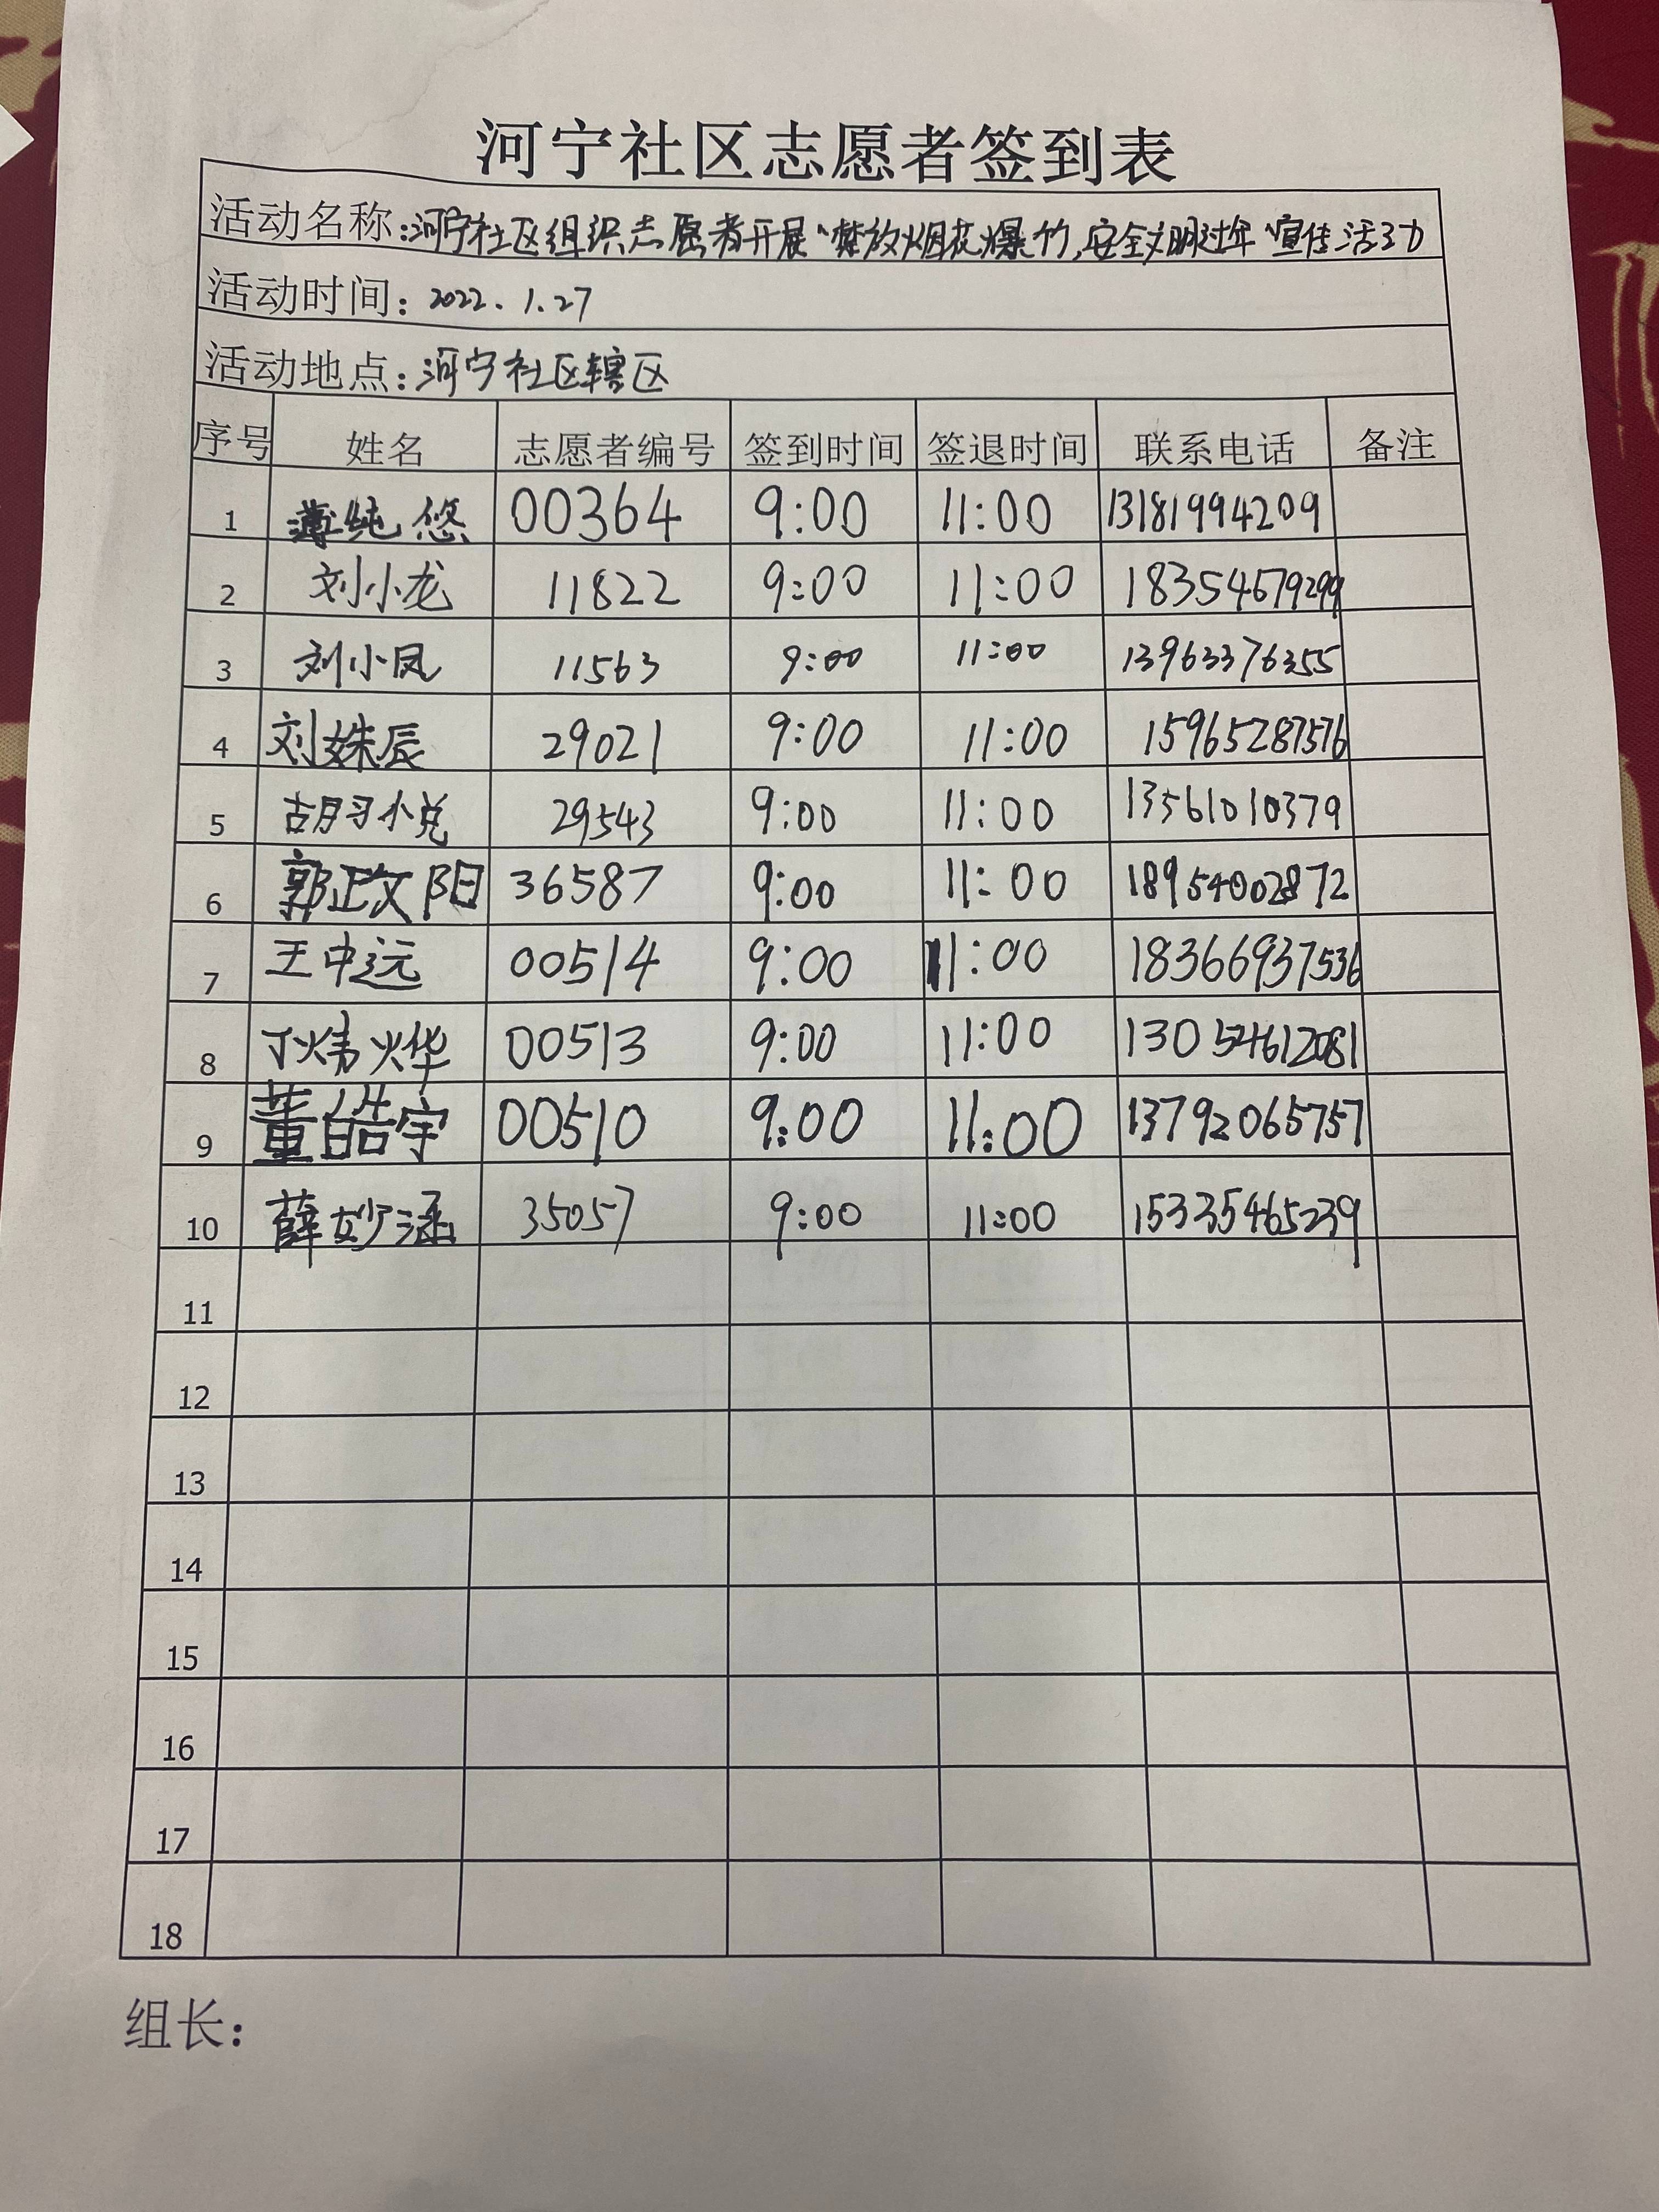 河宁社区志愿者签到表
活动名称:河宁社区组织志愿者开展“禁放烟花爆竹,安全文明过年”宣传活动
活动时间: 2022.1.27
活动地点:河宁社区辖区
序号 姓名 志愿者编号 签到时间 签退时间 联系电话 备注
1 薄纯悠 00364 9:00 11:00 13181994209
2 刘小龙 11822 9:00 11:00 18354679299
3 刘小凤 11563 9:00 11:00 13963376355
4 刘姝辰 29021 9:00 11:00 15965287576
5 29543 9:00 11:00 13561010379
6 郭政文阳 36587 9:00 11:00 18954002872
7 王中远 00514 9:00 11:00 18366937536
8 丁炜烨 00513 9:00 11:00 13054612081
9 董皓宇 00510 9:00 11:00 13792065757
10 薛妙涵 35057 9:00 11:00 15335465239
11
12
13
14
15
16
17
18
组长: